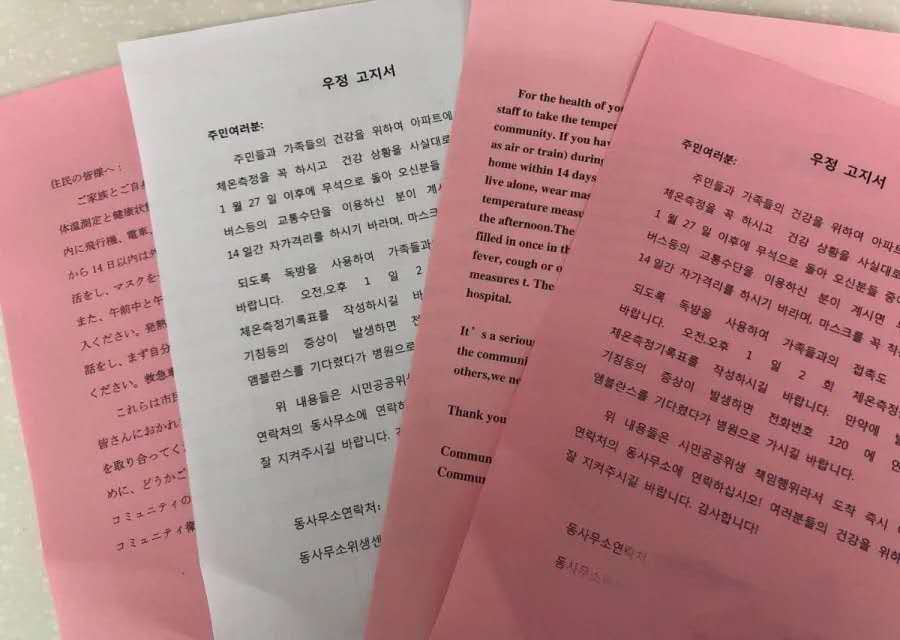 住民の皆様へ：
ご家族とご自身
体温測定と健康状態
内に飛行機、電車、
から14日以内は外
活をし、マスクを
また、午前中と午
入ください。発熱
話をし、まず自分
ください。救急車
これらは市民
皆さんにおかれ
を取り合ってく
めに、どうかご
コミュニティの
コミュニティ衛
우정 고지서
주민여러분:
주민들과 가족들의 건강을 위하여 아파트에
체온측정을 꼭 하시고 건강 상황을 사실대로
1 월 27 일 이후에 무석으로 돌아 오신분들
버스등의 교통수단을 이용하신 분이 계시
14일간 자가격리를 하시기 바라며, 마스크
되도록 독방을 사용하여 가족들과
바랍니다. 오전,오후 1 일 2
체온측정기록표를 작성하시길 바
기침등의 증상이 발생하면 전
앰블란스를 기다렸다가 병원으로
위 내용들은 시민공공위생
연락처의 동사무소에 연락하
잘 지켜주시길 바랍니다. 감
동사무소연락처:
동사무소위생센
For the health of you
staff to take the temper
community. If you hav
as air or train) during
home within 14 days
live alone, wear mas
temperature measu
the afternoon.The
filled in once in th
fever, cough or o
measures t. The
hospital.
It's a seriou
the communi
others,we ne
Thank you
Commun
Commun
우정 고지서
주민여러분:
주민들과 가족들의 건강을 위하여 아파트
체온측정을 꼭 하시고 건강 상황을 사실대로
1 월 27 일 이후에 무석으로 돌아 오신분들 중에
버스등의 교통수단을 이용하신 분이 계시면
14일간 자가격리를 하시기 바라며, 마스크를 꼭 착
되도록 독방을 사용하여 가족들과의 접촉도
바랍니다. 오전,오후 1 일 2 회 체온측정
체온측정기록표를 작성하시길 바랍니다. 만약에 발
기침등의 증상이 발생하면 전화번호 120 에 연
앰블란스를 기다렸다가 병원으로 가시길 바랍니다.
위 내용들은 시민공공위생 책임행위라서 도착 즉시
연락처의 동사무소에 연락하십시오! 여러분들의 건강을 위하
잘 지켜주시길 바랍니다. 감사합니다!
동사무소연락처
동사무소위